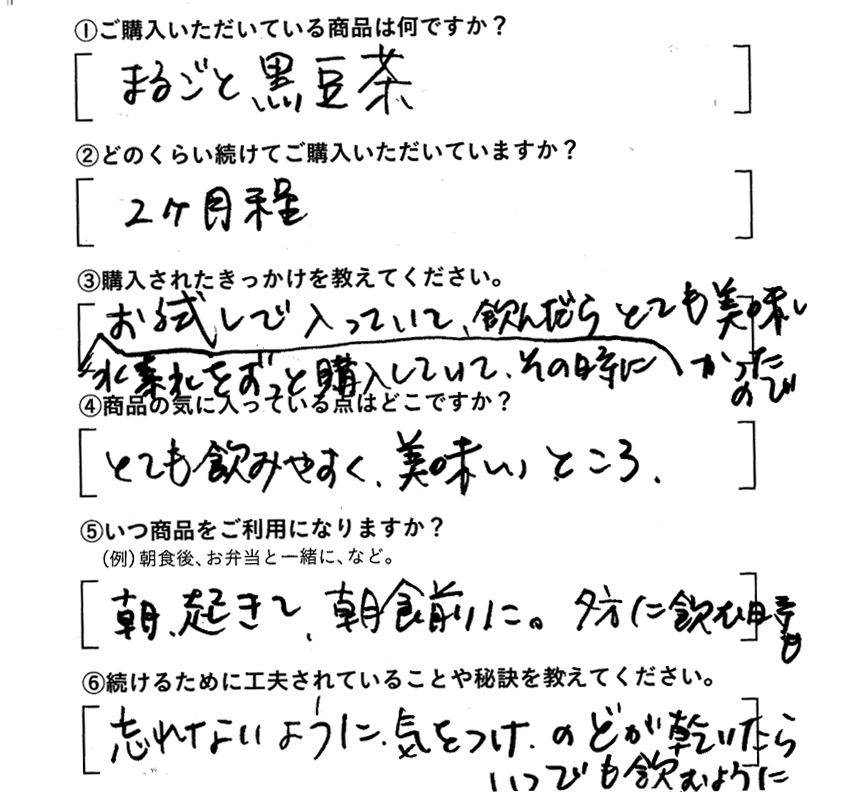 ①ご購入いただいている商品は何ですか？
まるごと黒豆茶
②どのくらい続けてご購入いただいていますか？
2ヶ月程
③購入されたきっかけを教えてください。
お試しで入っていて、飲んだらとても美味し
水素をずっと購入していて、その時に かった
ので
④商品の気に入っている点はどこですか？
とても飲みやすく、美味しいところ。
⑤いつ商品をご利用になりますか？
（例）朝食後、お弁当と一緒に、など。
朝、起きて、朝食前に。夕方に飲む時
も
⑥続けるために工夫されていることや秘訣を教えてください。
忘れないように、気をつけ、のどが乾いたら
いつでも飲むように